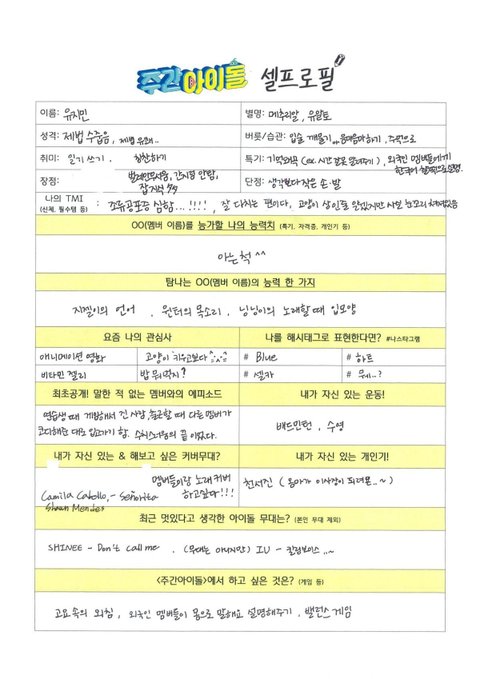 주간아이돌 셀프로필
이름: 유지민
별명: 메추리알, 유얌또
성격: 제법 수줍음, 제법 유쾌..
버릇/습관: 입술 깨물기,
취미: 일기 쓰기, 칭찬하기
특기: 기억왜곡 (ex. 시간 별로 말해주기), 외국인 멤버들에게
한국어
장점: 간지럼 안탐,
잡지식
단점: 생각보다 작은 손·발
나의 TMI
(신체, 필수템 등)
: 조류공포증 심함...!!!!, 잘 다치는 편이다, 고양이 상인줄 알겠지만 사실
OO(멤버 이름)를 능가할 나의 능력치 (특기, 자격증, 개인기 등)
아는 척 ^^
탐나는 OO(멤버 이름)의 능력 한 가지
지젤이의 언어, 윈터의 목소리, 닝닝이의 노래할 때 입모양
요즘 나의 관심사
나를 해시태그로 표현한다면? #나스타그램
애니메이션 영화
고양이 키우고보다
# Blue
# 하트
비타민 젤리
밥 뭐먹지?
# 셀카
# 뭐..?
최초공개! 말한 적 없는 멤버와의 에피소드
내가 자신 있는 운동!
연습생 때 게임해서 진 사람, 출근할 때 다른 멤버가
코디해준 대로 입고가기 함. 수치스러움의 끝이었다.
배드민턴, 수영
내가 자신 있는 & 해보고 싶은 커버무대?
내가 자신 있는 개인기!
멤버들이랑 노래 커버
하고싶다!!!
Camila Cabello, - Señorita
Shawn Mendes
천서진 (음악가 이사장이 되려면..~)
최근 멋있다고 생각한 아이돌 무대는? (본인 무대 제외)
SHINEE - Don't call me, (무대는 아니지만) IU - 킬링보이스..~
<주간아이돌>에서 하고 싶은 것은? (게임 등)
고요 속의 외침, 외국인 멤버들이 몸으로 말해요 설명해주기, 밸런스 게임